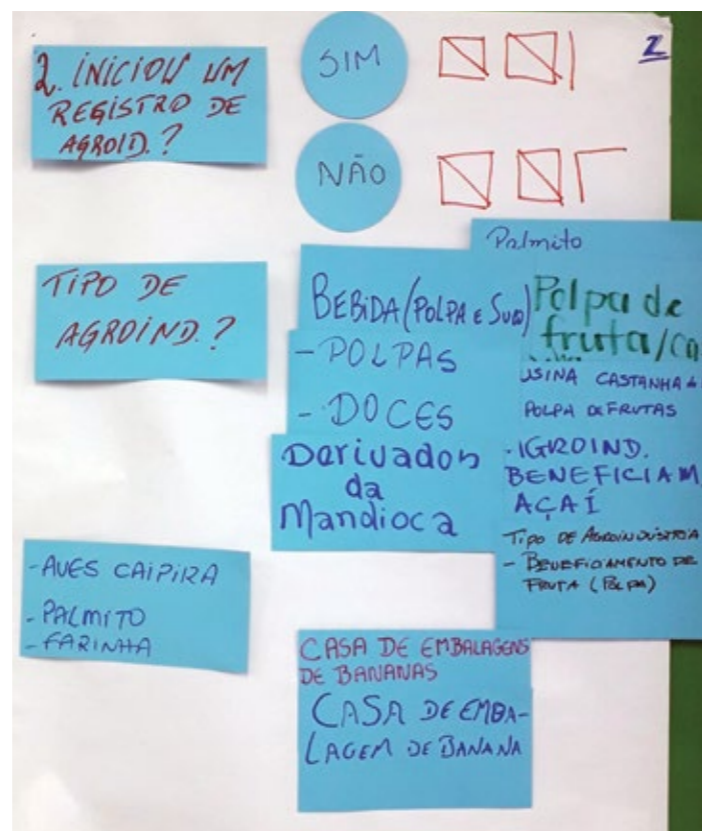 2
2. INICIOU UM
REGISTRO DE
AGROID.?
SIM
NÃO
TIPO DE
AGROIND.?
BEBIDA (POLPA E SUCO)
- POLPAS
- DOCES
Derivados
da
Mandioca
Palmito
Polpa de
fruta/ca
USINA CASTANHA
POLPA DE FRUTAS
BENEFICIAM
AÇAÍ
TIPO DE AGROINDÚSTRIA
- BENEFICIAMENTO DE
FRUTA (POLPA)
- AVES CAIPIRA
- PALMITO
- FARINHA
CASA DE EMBALAGENS
DE BANANAS
CASA DE EMBA-
LAGEM DE BANANA